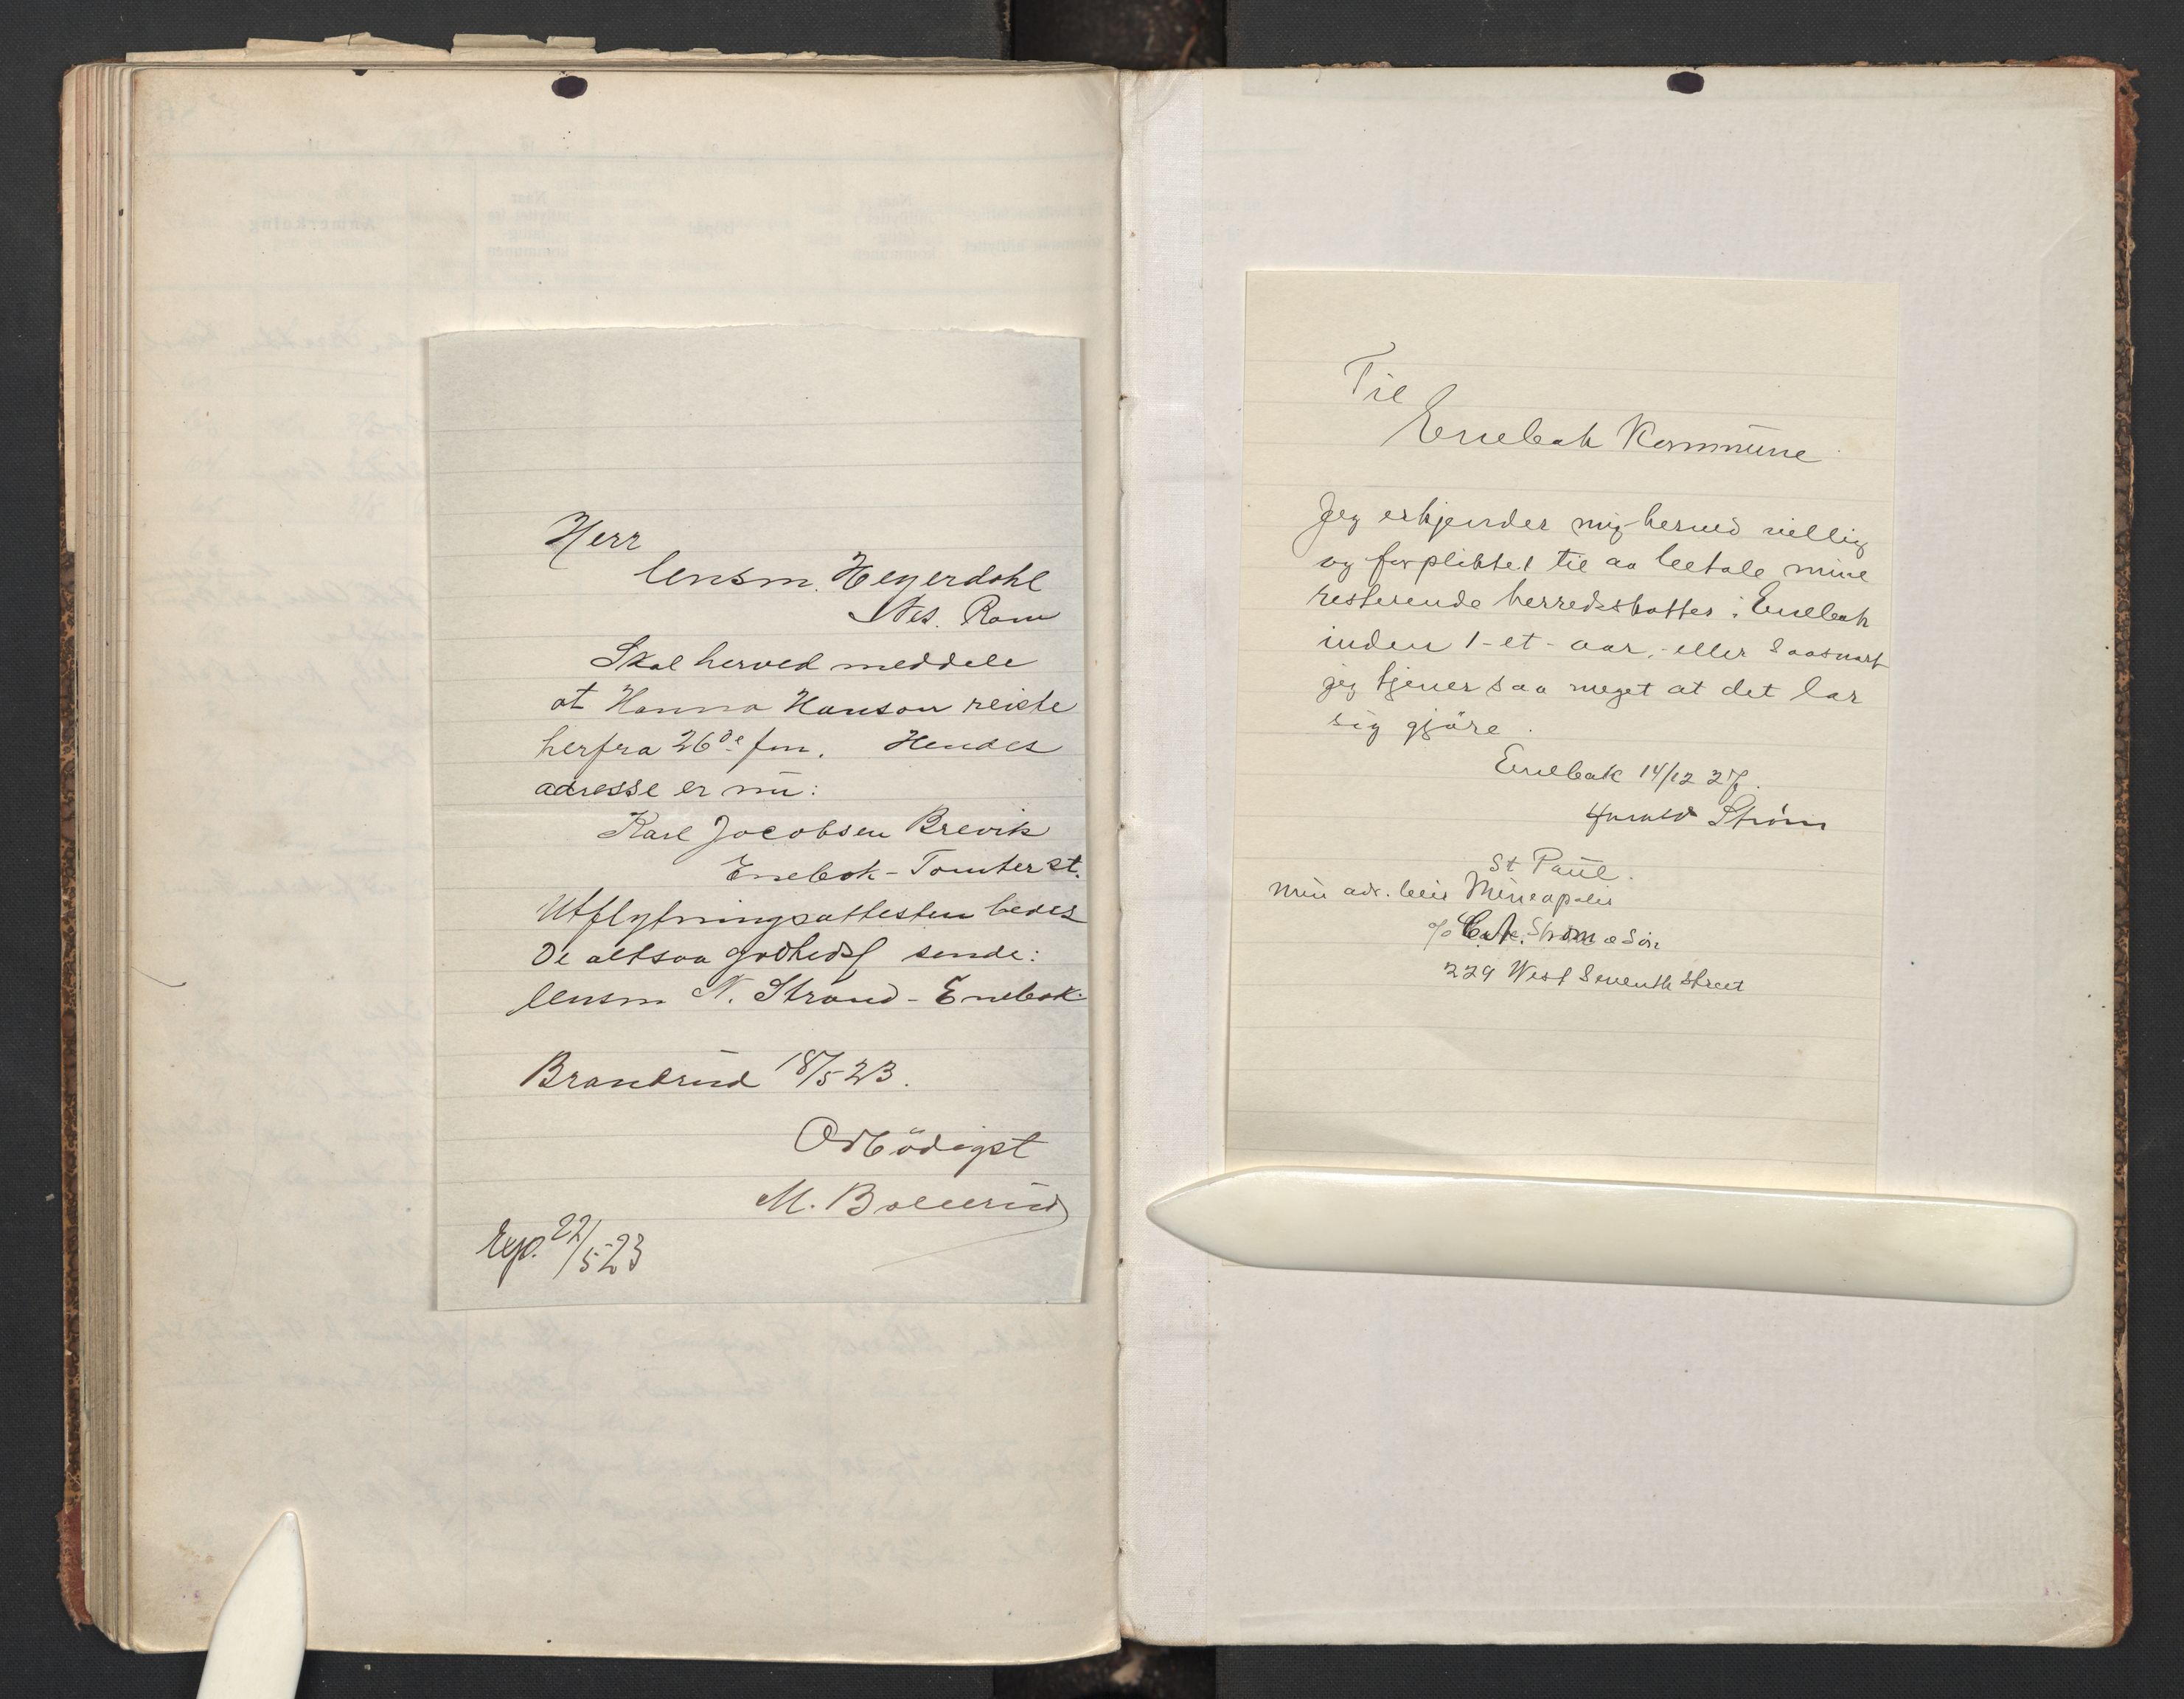 Herr
lensm. Heyerdahl
Nes. Rom
Skal herved meddele
at Hanna Hanson reiste
herfra 26de fm. Hendes
adresse er nu:
Karl Jacobsen Brevik
Enebak - Tomter st.
Utflytningsattesten bedes
De altsaa godhedsf sende:
lensm N. Strand - Enebak.
18/5-23.
Ærbödigst
M.
Exp. 22/5-23
Til
Enebak Kommune
Jeg erkjender mig herved villig
og forpliktet til aa betale mine
resterende herredsskatter i Enebak
inden 1-et-aar, eller saasnart
jeg tjener saa meget at det lar
sig gjöre.
Enebak 14/12 27.
Harald Strøm
St Paul.
Min adr. blir Mineapolis
c/o Strøm & Sön
229 West Seventh Street